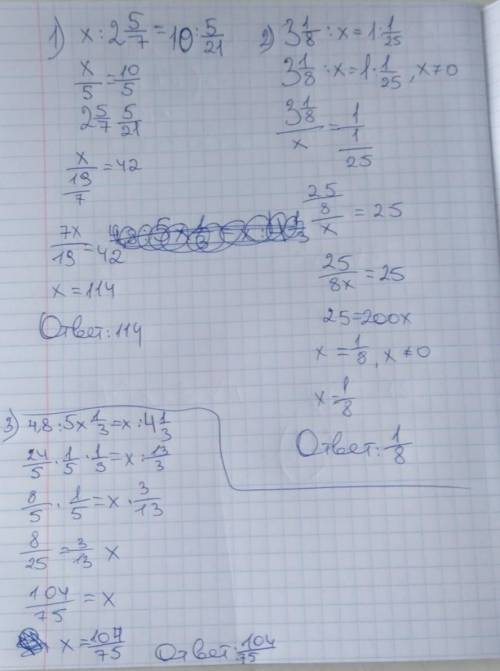 1) x : 2 5/7 = 10 : 5/21
x/5 = 10/5
2 5/7 5/21
x / 19/7 = 42
7x/19 = 42
x = 114
Ответ: 114
2) 3 1/8 : x = 1 · 1/25
3 1/8 : x = 1 · 1/25, x ≠ 0
3 1/8 / x = 1 / 1/25
25/8 / x = 25
25/8x = 25
25 = 200x
x = 1/8, x ≠ 0
x = 1/8
Ответ: 1/8
3) 4,8 : 5 x 1/3 = x : 4 1/3
24/5 · 1/5 · 1/3 = x : 13/3
8/5 · 1/5 = x · 3/13
8/25 = 3/13 x
104/75 = x
x = 104/75 Ответ: 104/75